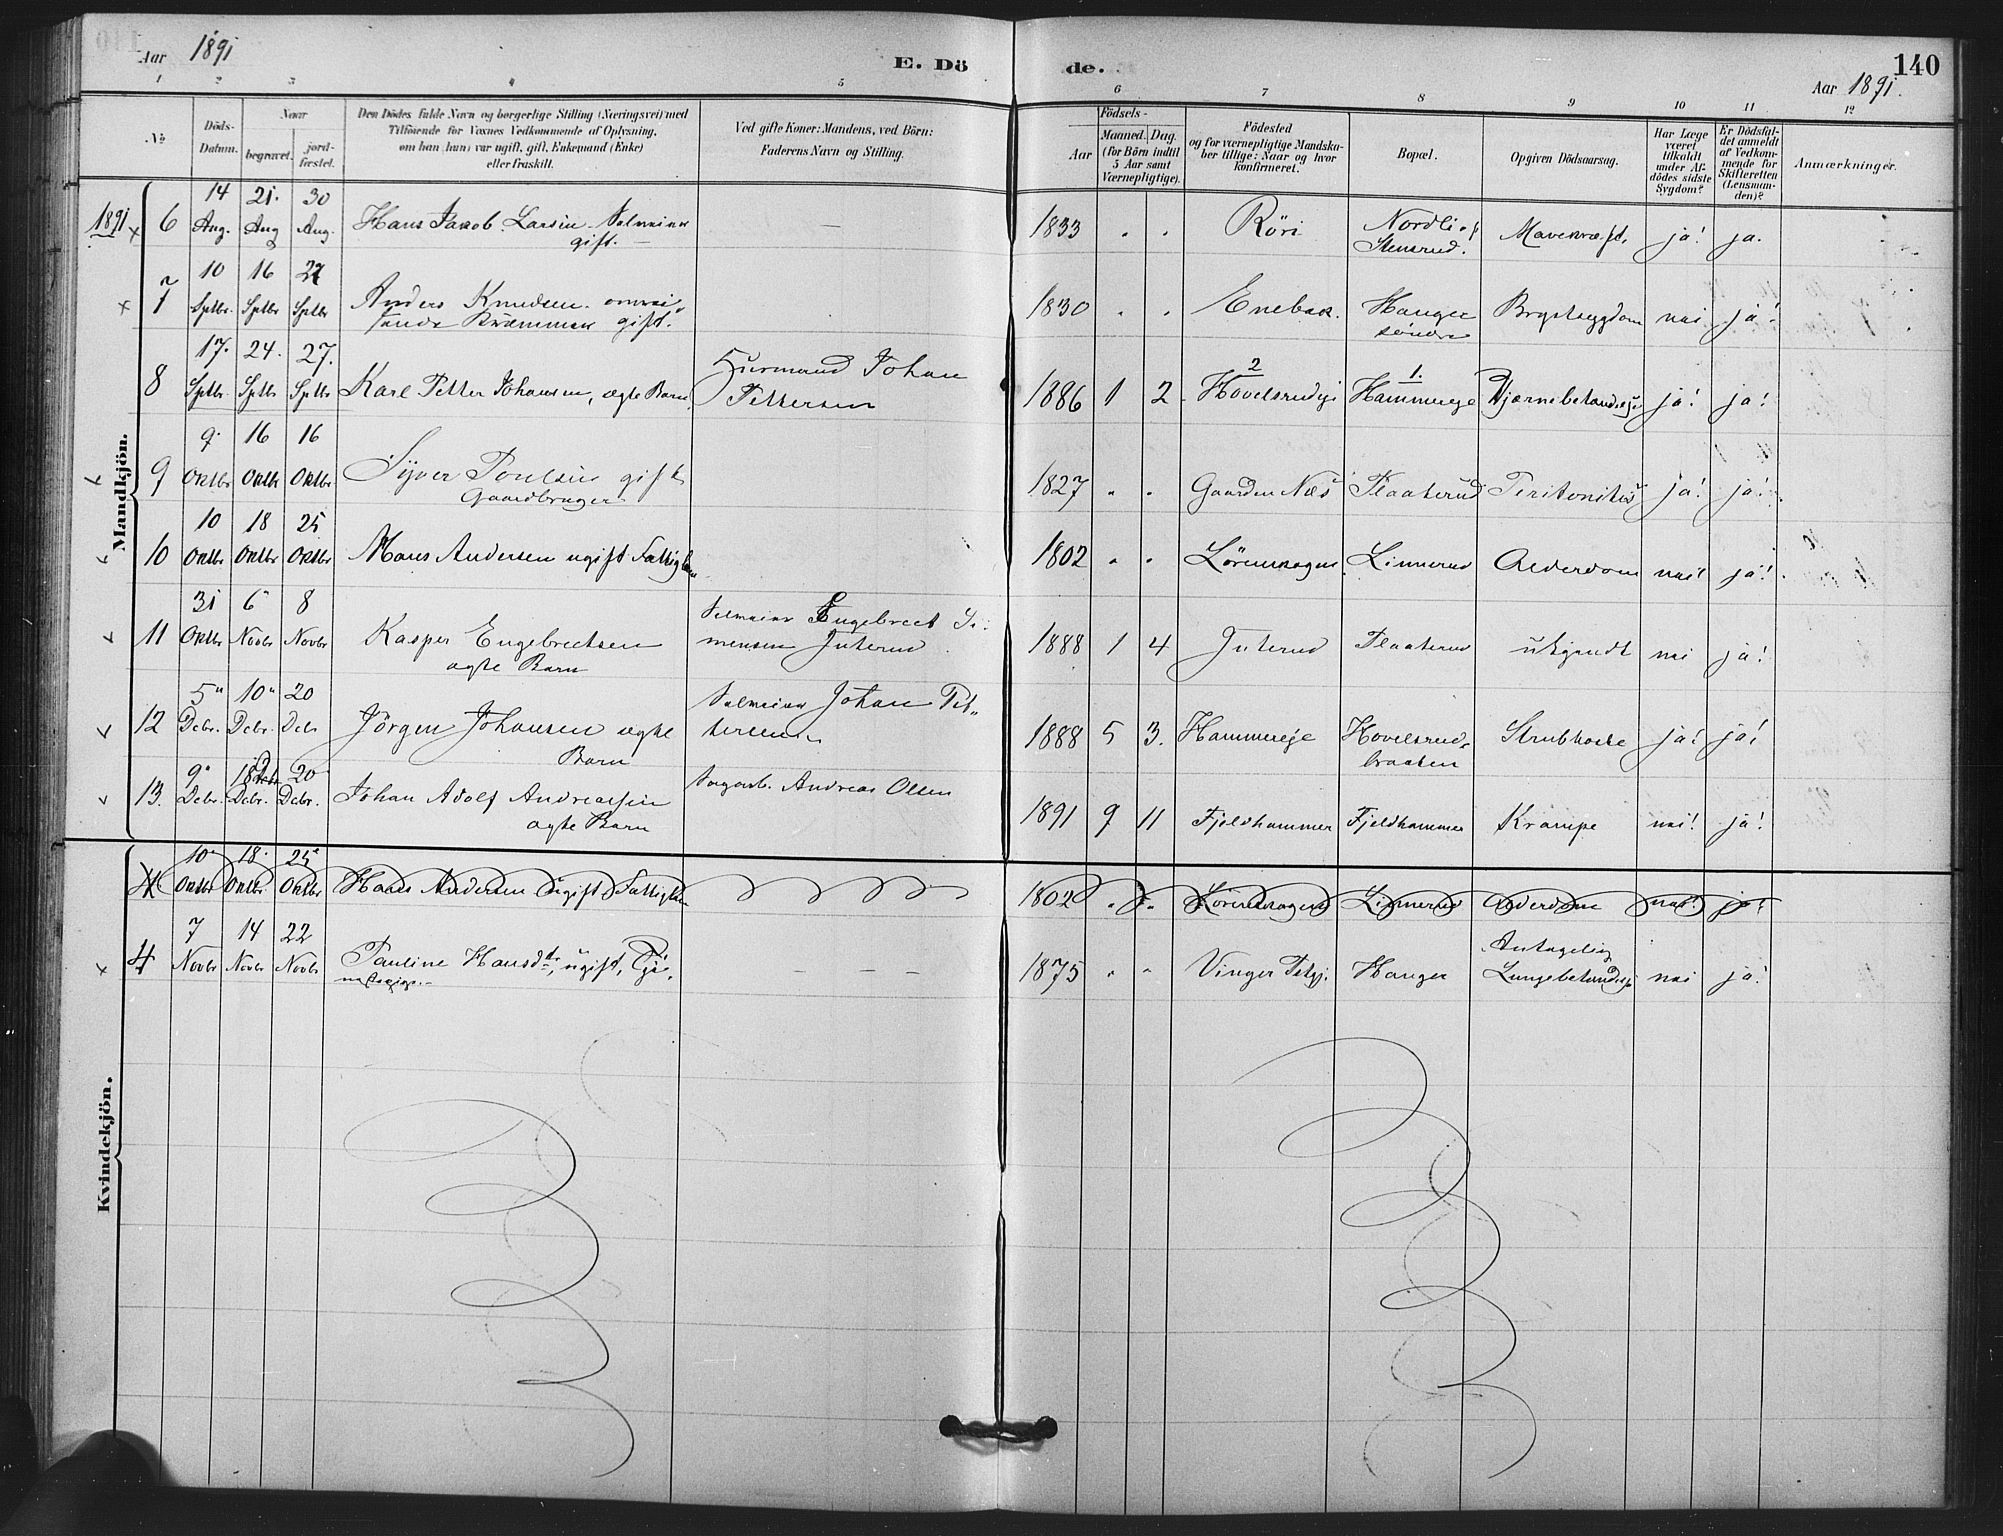 Aar 1891
E. Dö
de.
140
Aar 1891.
1 2 3 4 5 6 7 8 9 10 11 12
No
Döds-Datum.
Naar
begravet.
jordfæstet.
Den Dödes fulde Navn og borgerlige Stilling (Næringsvei) med
Tilföiende for Voxnes Vedkommende af Oplysning,
om han (hun) var ugift, gift, Enkemand (Enke)
eller fraskilt.
Ved gifte Koner: Mandens, ved Börn:
Faderens Navn og Stilling.
Födsels-
Aar
Maaned. Dag.
(for Börn indtil
5 Aar samt
Værnepligtige).
Födested
og for værnepligtige Mandska-
ber tillige: Naar og hvor
konfirmeret.
Bopæl.
Opgiven Dödsaarsag.
Har Læge
været
tilkaldt
under Af-
dödes sidste
Sygdom?
Er Dödsfal-
det anmeldt
af Vedkom-
mende for
Skifteretten
(Lensman-
den)?
Anmærkninger.
Mandkjön.
1891
14 21. 30
6 Aug. Aug Aug. Hans Jakob Larsen Selveier
gift. —
— 1833 " " Röri Nordli
Stensrud! Mavekræft. ja! ja.
10 16 27
7 Sptbr. Sptbr Sptbr Anders Knudsen omrei
sende Kræmmer gift.
1830 " " Enebak. Hauger
söndre nei ja!
17. 24. 27.
8 Sptbr. Sptbr Sptbr Karl Petter Johansen, ægte Barn.
Huusmand Johan
Pettersen
1886 1 2 2 Hovelsrudeje 1. Hammereje Hjærnebetændelse ja! ja!
9. 16 16
9 Oktbr Oktbr Oktbr Syver Poulsen gift
Gaardbruger
1827 " " Gaarden Næs Flaaterud Peritonitis ja! ja!
10 18 25
10 Oktbr Oktbr Oktbr Hans Andersen ugift Fattiglem
1802 " " Lörenskogen Linnerud Alderdom nei! ja!
31 6 8
11 Oktbr Novbr Novbr Kasper Engebrectsen
ægte Barn
Selveier Engebrect Si-
mensen Juterud
1888 1 4 Juterud Flaaterud ubekjendt nei ja!
5 10 20
12 Decbr. Decbr. Decbr Jörgen Johansen ægte
Barn
Selveier Johan Pet-
tersen
1888 5 3. Hammereje Hovelsrud-
braaten Strubhoste ja! ja!
9 18 20
13. Decbr. Decbr. Decbr. Johan Adolf Andreassen
ægte Barn
Sagarb. Andreas Olsen
1891 9 11 Fjeldhammer Fjeldhammer Krampe nei! ja!
Kvindekjön.
10 18 25
4 Oktbr Oktbr Oktbr Hans Andersen ugift Fattiglem
1802 " " Lörenskogen Linnerud Alderdom nei! ja!
7 14 22
4 Novbr Novbr Novbr Pauline Hansdtr, ugift, Tje-
nestepige.
— — — 1875 " " Vinger Prstgj. Hauger Antagelig
Lungebetændelse nei ja!